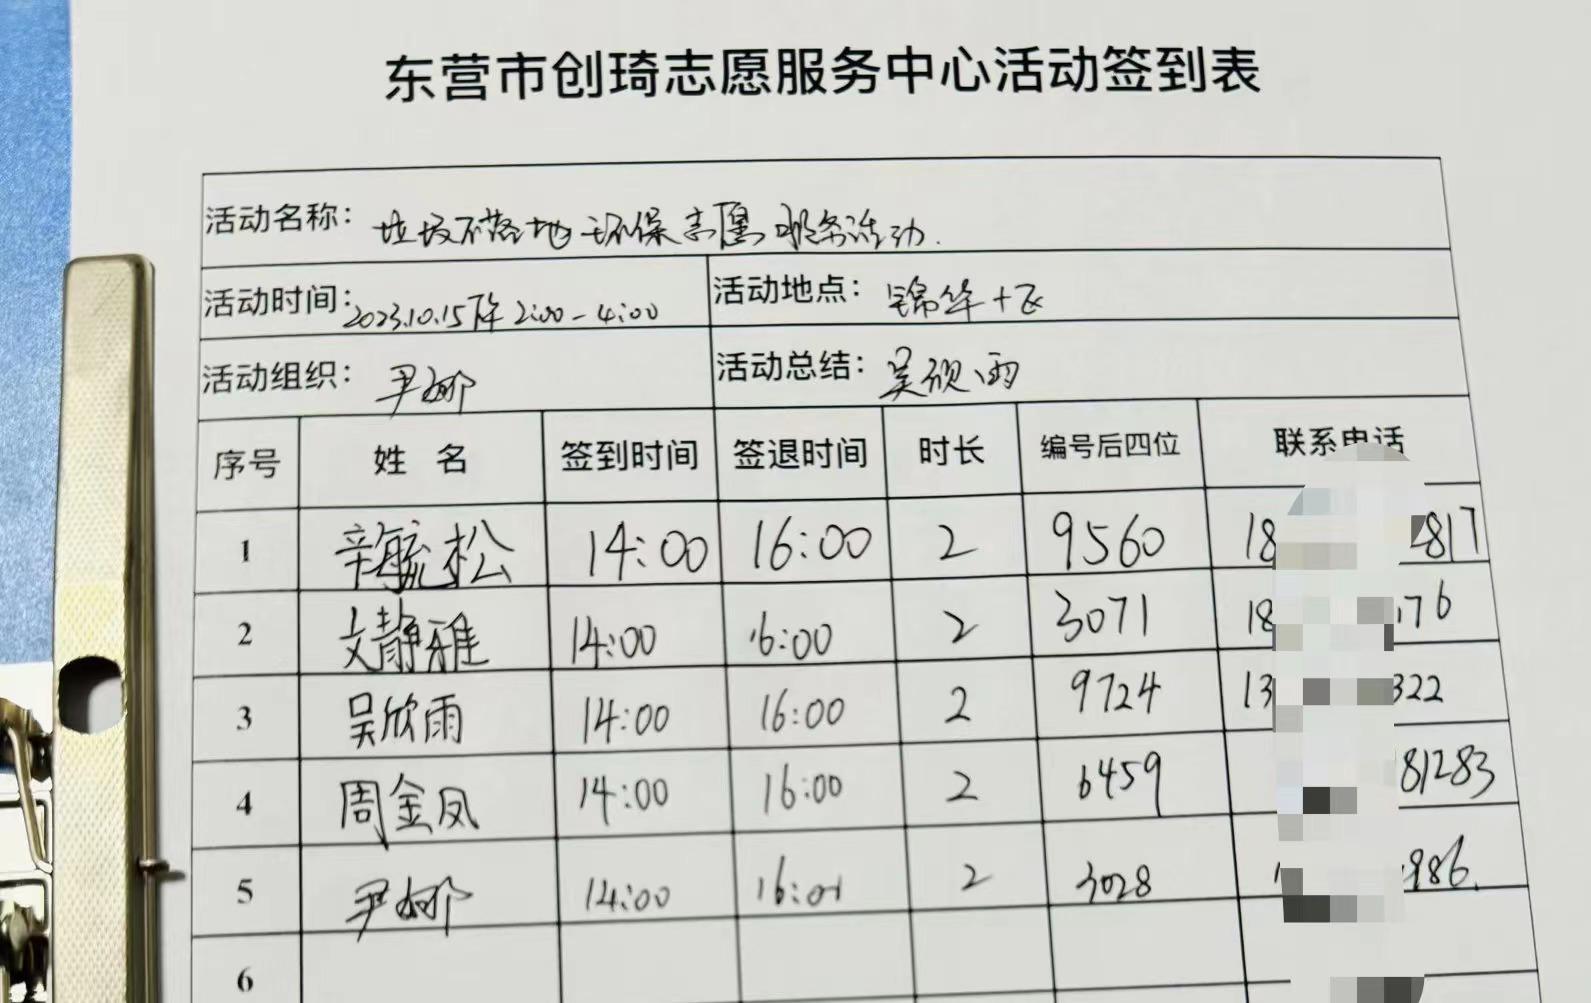 东营市创琦志愿服务中心活动签到表
活动名称：垃圾不落地 环保志愿服务活动.
活动时间：2023.10.15下午 2:00-4:00 活动地点：锦华十
活动组织：尹娜 活动总结：吴欣雨
序号 姓 名 签到时间 签退时间 时长 编号后四位 联系电话
1 辛毓松 14:00 16:00 2 9560 18 2817
2 文静雅 14:00 16:00 2 3071 18 176
3 吴欣雨 14:00 16:00 2 9724 13 322
4 周金凤 14:00 16:00 2 6459 81283
5 尹娜 14:00 16:01 2 3028 986.
6